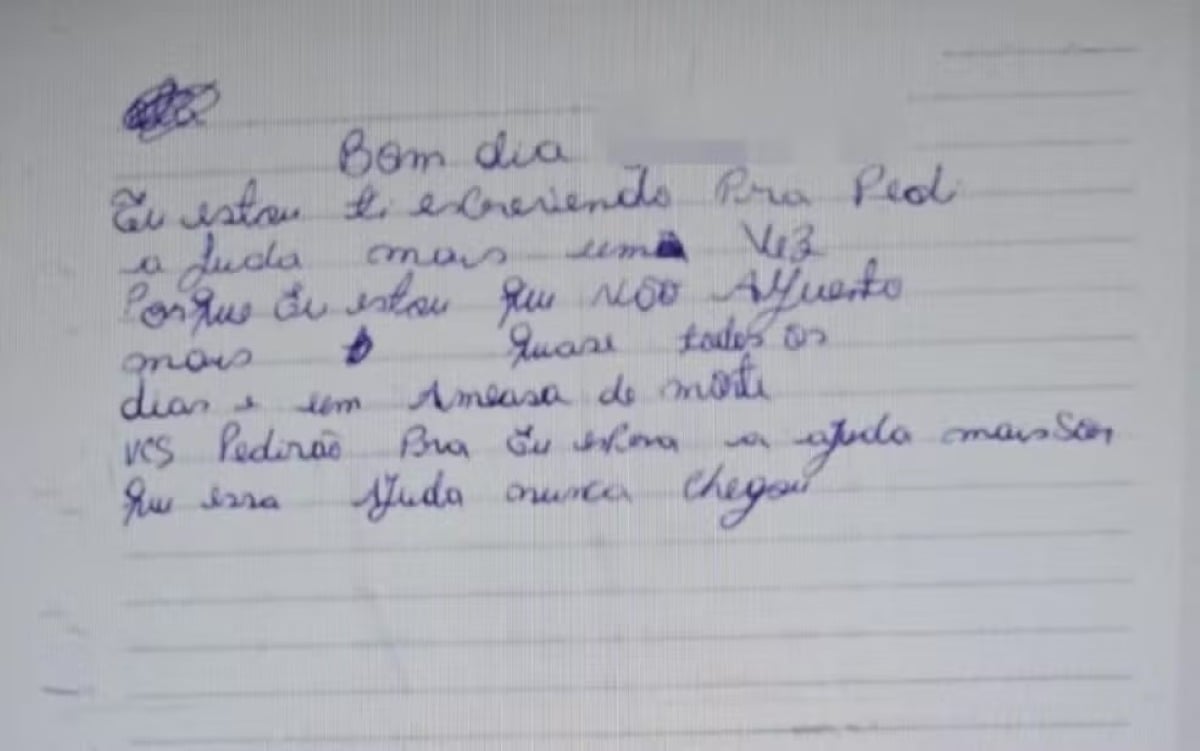 Bom dia
Eu estou ti escrevendo Pra Pedi
a Juda mais uma Vez
Porque Eu estou que NÃO Aguento
mais quase todos os
dias e um Ameasa de morte
vcs Pedirão Pra Eu espera a ajuda mais So
que essa Ajuda nunca chegou